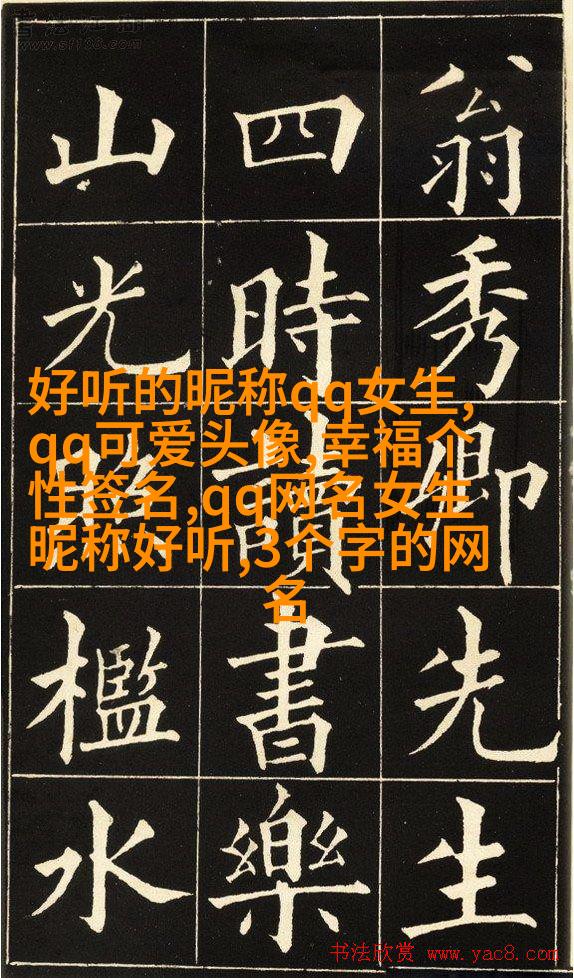 翁秀卿先生
四時讀書樂
山光照檻水
好听的昵称qq女生,
qq可爱头像,幸福个
性签名,qq网名女生
昵称好听,3个字的网
名
书法欣赏 www.yac8.com